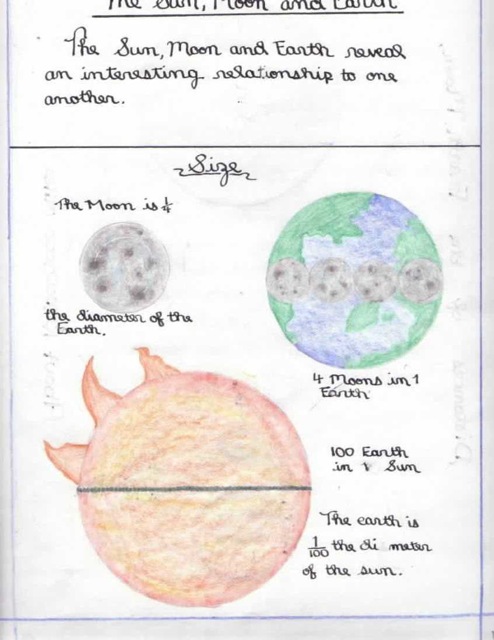 The Sun, Moon and Earth
The Sun, Moon and Earth reveal
an interesting relationship to one
another.
Size
The Moon is 1/4
the diameter of the
Earth.
4 Moons in 1
Earth
100 Earth
in 1 Sun
The earth is
1/100 the di meter
of the sun.